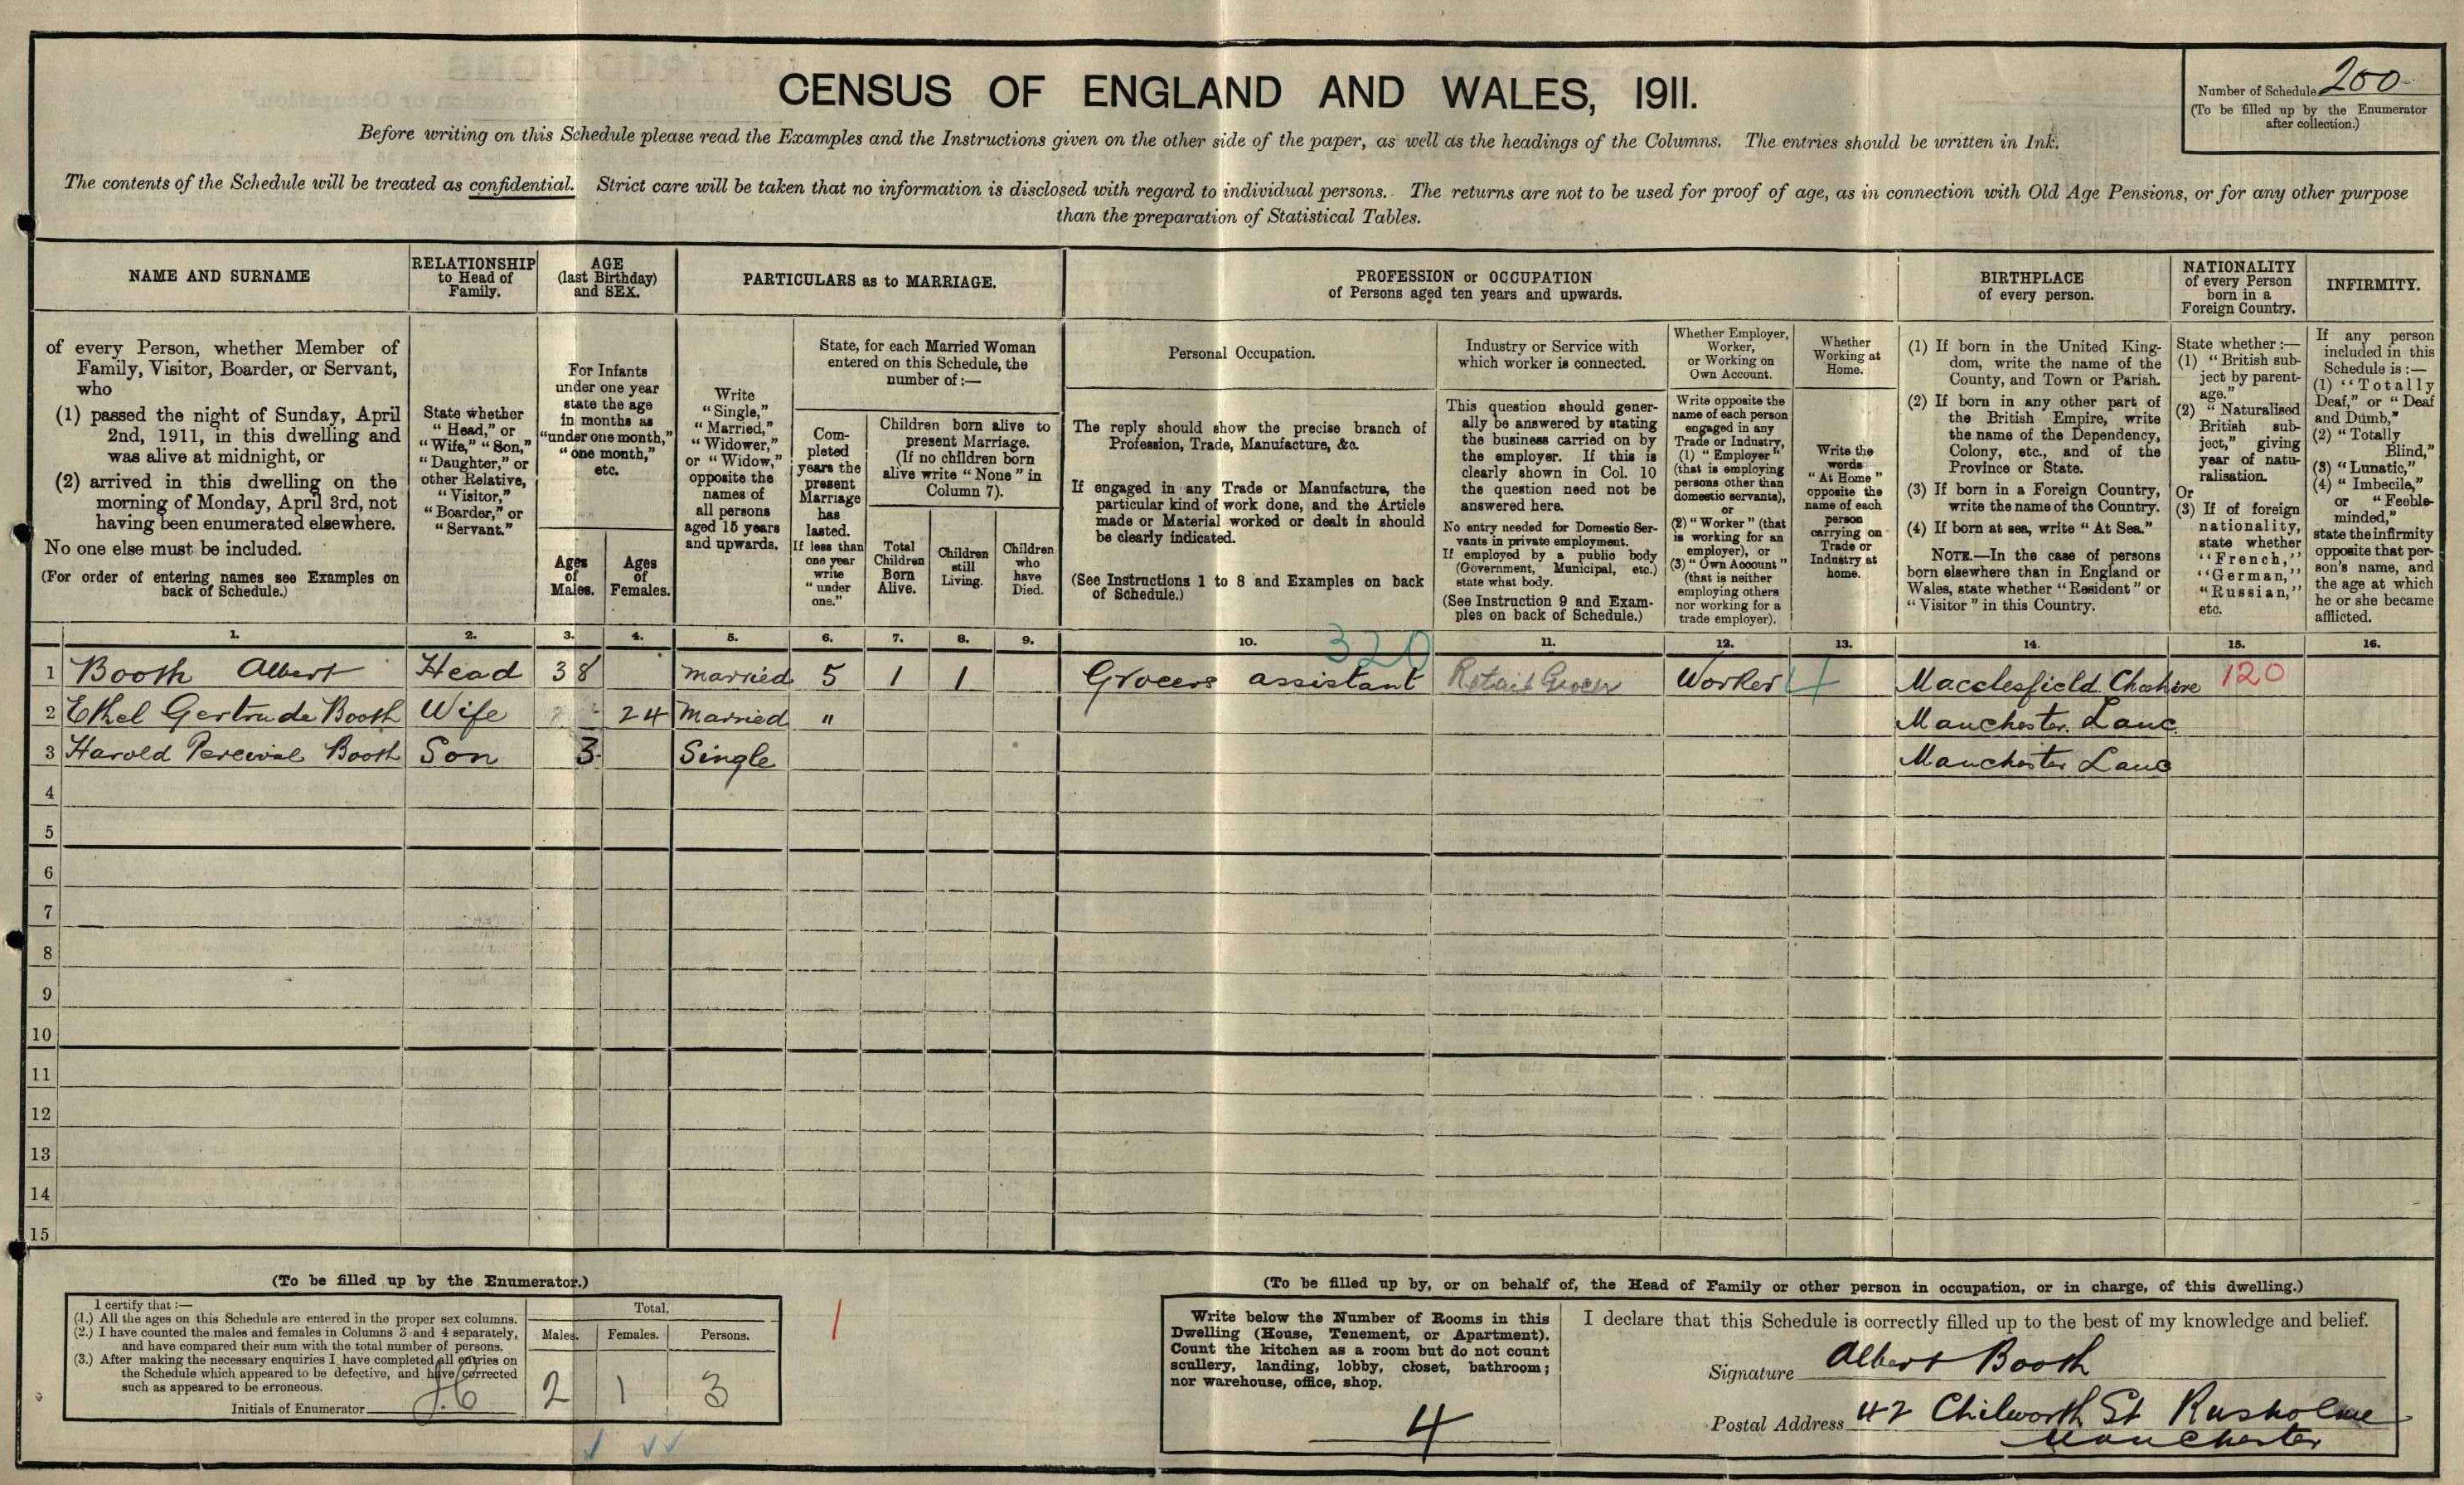 CENSUS OF ENGLAND AND WALES, 1911.
Number of Schedule 200
(To be filled up by the Enumerator
after collection.)
Before writing on this Schedule please read the Examples and the Instructions given on the other side of the paper, as well as the headings of the Columns. The entries should be written in Ink.
The contents of the Schedule will be treated as confidential. Strict care will be taken that no information is disclosed with regard to individual persons. The returns are not to be used for proof of age, as in connection with Old Age Pensions, or for any other purpose
than the preparation of Statistical Tables.
NAME AND SURNAME
of every Person, whether Member of
Family, Visitor, Boarder, or Servant,
who
(1) passed the night of Sunday, April
2nd, 1911, in this dwelling and
was alive at midnight, or
(2) arrived in this dwelling on the
morning of Monday, April 3rd, not
having been enumerated elsewhere.
No one else must be included.
(For order of entering names see Examples on
back of Schedule.)
RELATIONSHIP
to Head of
Family.
State whether
"Head," or
"Wife," "Son,"
"Daughter," or
other Relative,
"Visitor,"
"Boarder," or
"Servant."
AGE
(last Birthday)
and SEX.
For Infants
under one year
state the age
in months as
"under one month,"
"one month,"
etc.
Ages
of
Males.
Ages
of
Females.
PARTICULARS as to MARRIAGE.
Write
"Single,"
"Married,"
"Widower,"
or "Widow,"
opposite the
names of
all persons
aged 15 years
and upwards.
State, for each Married Woman
entered on this Schedule, the
number of:—
Com-
pleted
years the
present
Marriage
has
lasted.
If less than
one year
write
"under
one."
Children born alive to
present Marriage.
(If no children born
alive write "None" in
Column 7).
Total
Children
Born
Alive.
Children
still
Living.
Children
who
have
Died.
PROFESSION or OCCUPATION
of Persons aged ten years and upwards.
Personal Occupation.
The reply should show the precise branch of
Profession, Trade, Manufacture, &c.
If engaged in any Trade or Manufacture, the
particular kind of work done, and the Article
made or Material worked or dealt in should
be clearly indicated.
(See Instructions 1 to 8 and Examples on back
of Schedule.)
Industry or Service with
which worker is connected.
This question should gener-
ally be answered by stating
the business carried on by
the employer. If this is
clearly shown in Col. 10
the question need not be
answered here.
No entry needed for Domestic Ser-
vants in private employment.
If employed by a public body
(Government, Municipal, etc.)
state what body.
(See Instruction 9 and Exam-
ples on back of Schedule.)
Whether Employer,
Worker,
or Working on
Own Account.
Write opposite the
name of each person
engaged in any
Trade or Industry,
(1) "Employer"
(that is employing
persons other than
domestic servants),
or
(2) "Worker" (that
is working for an
employer), or
(3) "Own Account"
(that is neither
employing others
nor working for a
trade employer).
Whether
Working at
Home.
Write the
words
"At Home"
opposite the
name of each
person
carrying on
Trade or
Industry at
home.
BIRTHPLACE
of every person.
(1) If born in the United King-
dom, write the name of the
County, and Town or Parish.
(2) If born in any other part of
the British Empire, write
the name of the Dependency,
Colony, etc., and of the
Province or State.
(3) If born in a Foreign Country,
write the name of the Country.
(4) If born at sea, write "At Sea."
NOTE.—In the case of persons
born elsewhere than in England or
Wales, state whether "Resident" or
"Visitor" in this Country.
NATIONALITY
of every Person
born in a
Foreign Country.
State whether:—
(1) "British sub-
ject by parent-
age."
(2) "Naturalised
British sub-
ject," giving
year of natu-
ralisation.
Or
(3) If of foreign
nationality,
state whether
"French,"
"German,"
"Russian,"
etc.
INFIRMITY.
If any person
included in this
Schedule is:—
(1) "Totally
Deaf," or "Deaf
and Dumb,"
(2) "Totally
Blind,"
(3) "Lunatic,"
(4) "Imbecile,"
or "Feeble-
minded,"
state the infirmity
opposite that per-
son's name, and
the age at which
he or she became
afflicted.
1. 2. 3. 4. 5. 6. 7. 8. 9. 10. 11. 12. 13. 14. 15. 16.
320
1 Booth Albert Head 38 Married 5 1 1 Grocers assistant Retail Grocer Worker Macclesfield Cheshire 120
2 Ethel Gertrude Booth Wife 24 Married " Manchester Lanc
3 Harold Percival Booth Son 3 Single Manchester Lanc
4
5
6
7
8
9
10
11
12
13
14
15
(To be filled up by the Enumerator.)
I certify that:—
(1.) All the ages on this Schedule are entered in the proper sex columns.
(2.) I have counted the males and females in Columns 3 and 4 separately,
and have compared their sum with the total number of persons.
(3.) After making the necessary enquiries I have completed all entries on
the Schedule which appeared to be defective, and have corrected
such as appeared to be erroneous.
Initials of Enumerator
Total.
Males. Females. Persons.
2 1 3
(To be filled up by, or on behalf of, the Head of Family or other person in occupation, or in charge, of this dwelling.)
Write below the Number of Rooms in this
Dwelling (House, Tenement, or Apartment).
Count the kitchen as a room but do not count
scullery, landing, lobby, closet, bathroom;
nor warehouse, office, shop.
4
I declare that this Schedule is correctly filled up to the best of my knowledge and belief.
Signature Albert Booth
Postal Address 42 Chilworth St Rusholme
Manchester